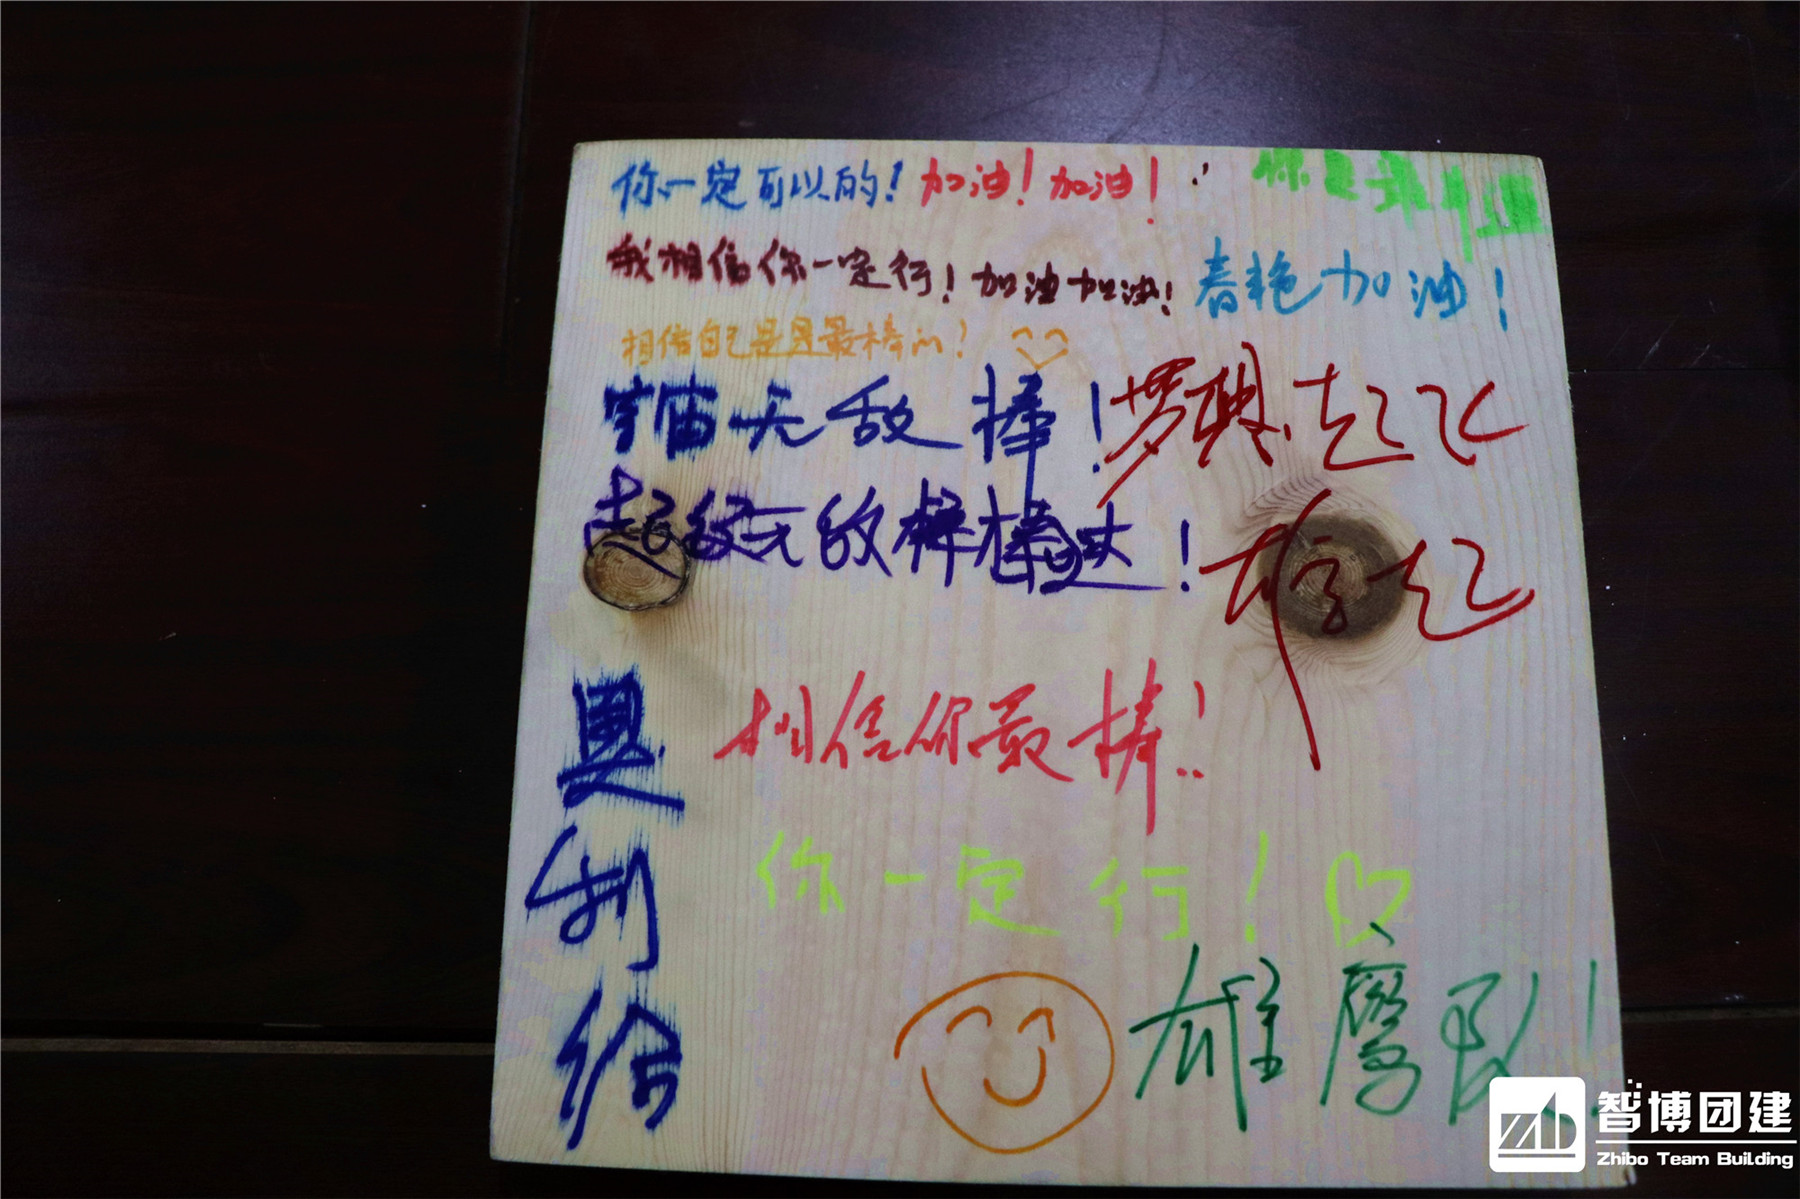 你一定可以的！加油！加油！
你是最牛
我相信你一定行！加油加油！
春艳加油！
相信自己是最棒的！
宇宙无敌棒！
梦想起飞
超级无敌棒棒哒！
雄起
相信你最棒！
你一定行！
给
雄鹰队！
智博团建
Zhibo Team Building